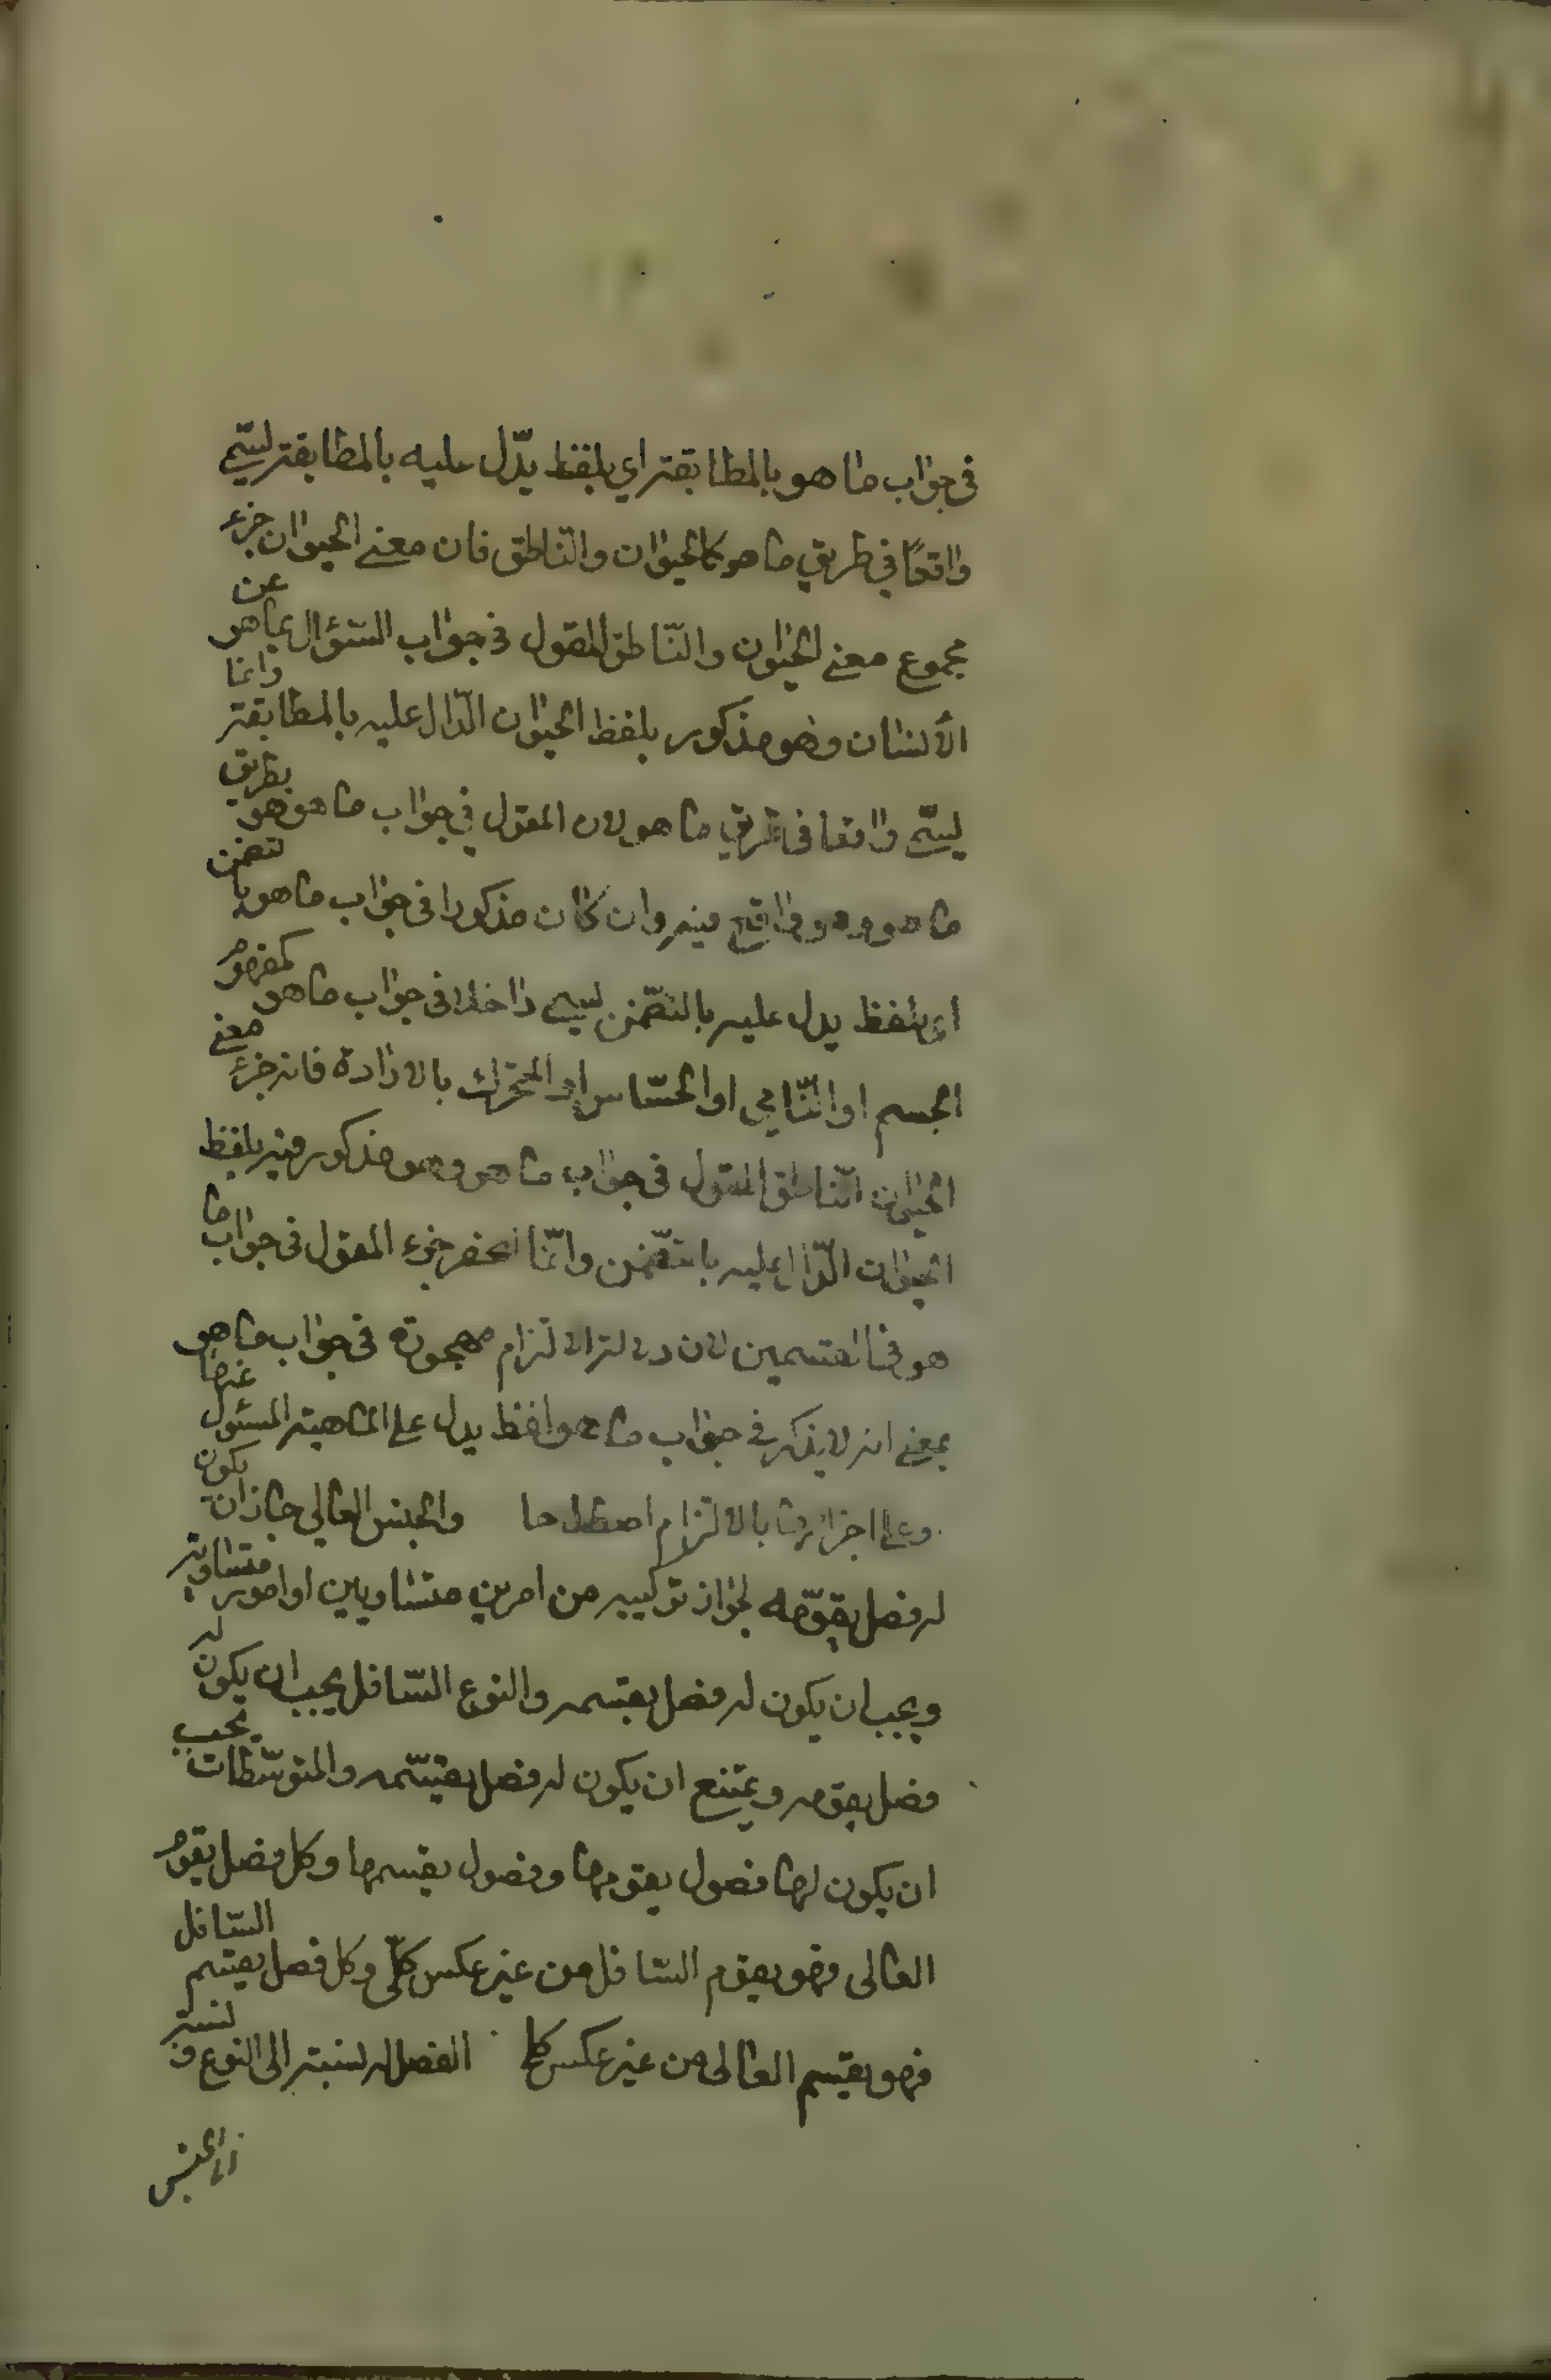 في جواب ما هو بالمطابقة اي بلفظ يدّل عليه بالمطابقة يسمّى
واقعًا في طريق ما هو كالحيوان والنّاطق فان معنى الحيوان جزء
مجموع معنى الحيوان والنّاطق المقول في جواب السّؤال عما هو عن
الأنسان وهو مذكور بلفظ الحيوان الدّال عليه بالمطابقة وانما
يسمّى واقعا في طريق ما هو لان المقول في جواب ما هو هو بطريق
ما هو وهو واقع فيه وان كان مذكورا في جواب ما هو بالتضمن
اي بلفظ يدل عليه بالتضّمن يسمى داخلا في جواب ما هو كمفهوم
الجسم او النّامي او الحسّاس او المتحرّك بالارادة فانه جزء معنى
الحيوان النّاطق المقول في جواب ما هو وهو مذكور فيه بلفظ
الحيوان الدّال عليه بالتضّمن وانّما انحصر جزء المقول في جواب ما
هو في القسمين لان دلالة الالتزام مهجورة في جواب ما هو
بمعنى انه لا يذكر في جواب ما هو لفظ يدل على الماهية المسئول عنها
وعلى اجزائها بالالتزام اصطلاحا والجنس العالي جاز ان يكون
له فصل يقوّمه لجواز تركيبه من امرين متساويين او امور متساوية
ويجب ان يكون له فصل يقسمه والنوع السّافل يجب ان يكون له
فصل يقومه ويمتنع ان يكون له فصل يقسّمه والمتوسّطات يجب
ان يكون لها فصول يقومها وفصول يقسمها وكل فصل يقوم
العالى فهو يقوم السّافل من غير عكس كلّى وكل فصل يقسم السّافل
فهو يقسم العالى من غير عكس كلى الفصل له نسبة الى النوع و نسبة
الى الجنس